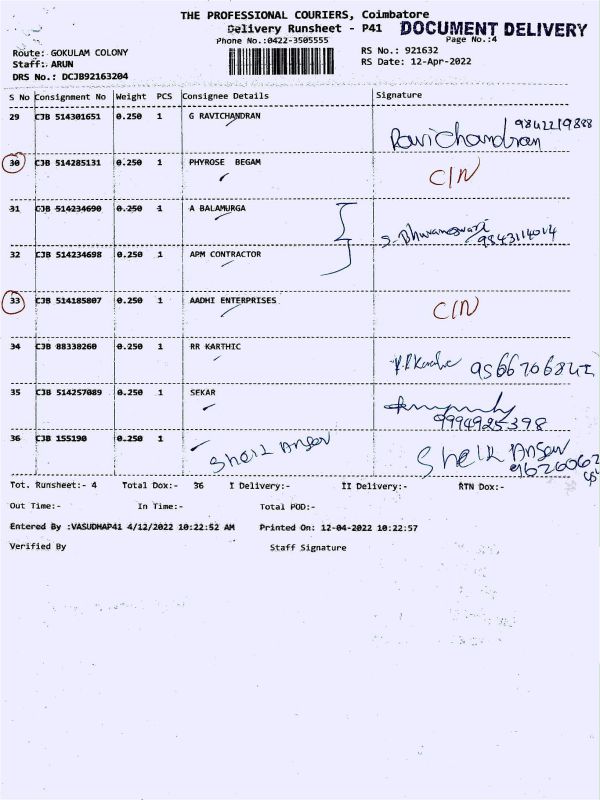 THE PROFESSIONAL COURIERS, Coimbatore
Delivery Runsheet - P41 DOCUMENT DELIVERY
Phone No.:0422-3505555 Page No.:4
Route: GOKULAM COLONY RS No.: 921632
Staff: ARUN RS Date: 12-Apr-2022
DRS No.: DCJB92163204
S No Consignment No Weight PCS Consignee Details Signature
29 CJB 514301651 0.250 1 G RAVICHANDRAN Ravichandran 9842219888
30 CJB 514285131 0.250 1 PHYROSE BEGAM C/N
31 CJB 514234690 0.250 1 A BALAMURGA S. Bhuvaneswari
9843114014
32 CJB 514234698 0.250 1 APM CONTRACTOR
33 CJB 514185807 0.250 1 AADHI ENTERPRISES C/N
34 CJB 88338260 0.250 1 RR KARTHIC
35 CJB 514257089 0.250 1 SEKAR
9994925398
36 CJB 155190 0.250 1 Sheik Ansar Sheik Ansar
Tot. Runsheet:- 4 Total Dox:- 36 I Delivery:- II Delivery:- RTN Dox:-
Out Time:- In Time:- Total POD:-
Entered By :VASUDHAP41 4/12/2022 10:22:52 AM Printed On: 12-04-2022 10:22:57
Verified By Staff Signature